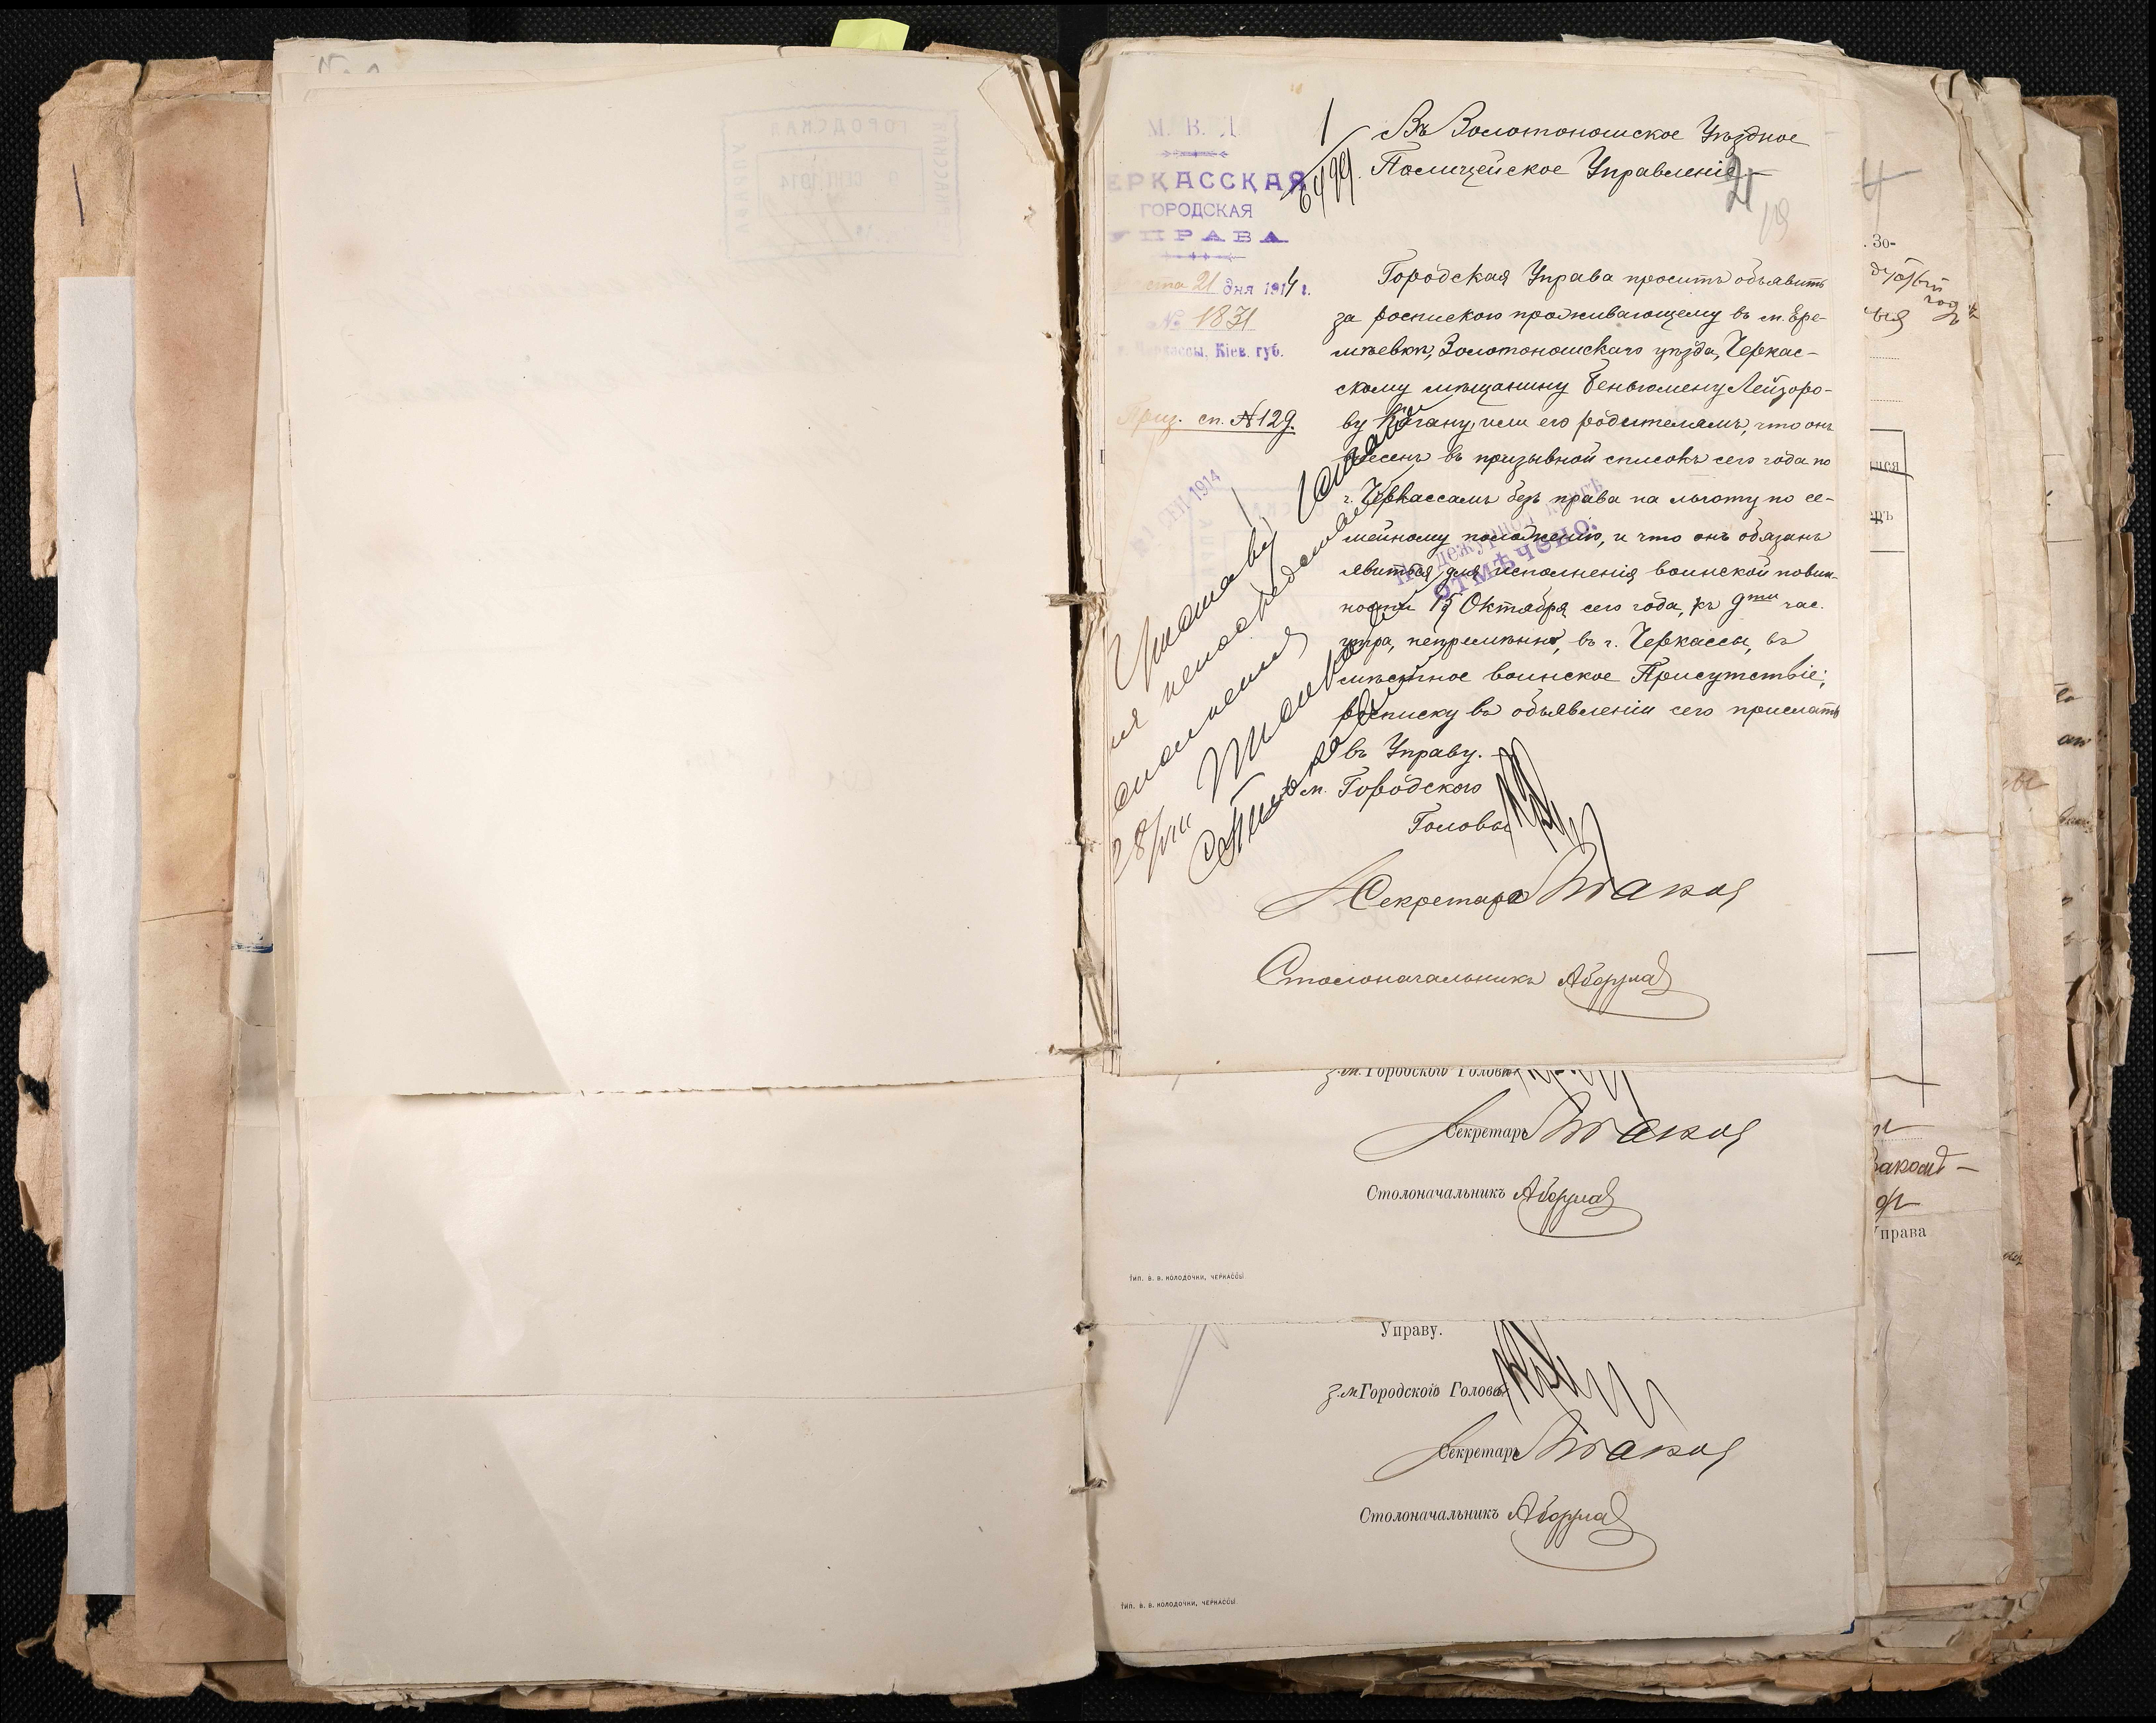 М. В. Д.
ЕРКАССКАЯ
ГОРОДСКАЯ
УПРАВА
ста 21 дня 1914 г.
№ 1831
г. Черкассы, Кіев. губ.
Приз. сп. № 129.
1
6499.
Въ Золотоношское Уѣздное
Полицейское Управленіе
21
Городская Управа проситъ объявить
за роспискою проживающему въ м. Ере-
мѣевкѣ, Золотоношскаго уѣзда, Черкас-
скому мѣщанину Беньюмену Лейзоро-
ву Когану, или его родителямъ, что онъ
внесенъ въ призывной списокъ сего года по
г. Черкассамъ безъ права на льготу по се-
мейному положенію, и что онъ обязанъ
явиться для исполненія воинской повин-
ности 15 Октября сего года, къ 9ти час.
утра, непремѣнно, въ г. Черкассы, въ
мѣстное воинское Присутствіе;
росписку въ объявленіи сего прислать
въ Управу.
СЕН 1914
ОТМѢЧЕНО.
Приставу
исполненія
28/VIII
м. Городского
Головы
Секретарь
Столоначальникъ
з.м. Городского Головы
Секретарь
Столоначальникъ
ТИП. В. В. КОЛОДОЧКИ, ЧЕРКАССЫ
Управу.
з.м. Городского Головы
Секретарь
Столоначальникъ
ТИП. В. В. КОЛОДОЧКИ, ЧЕРКАССЫ
ГОРОДСКАЯ
СЕН. 1914
4
. Зо-
год
ися
еръ
Управа